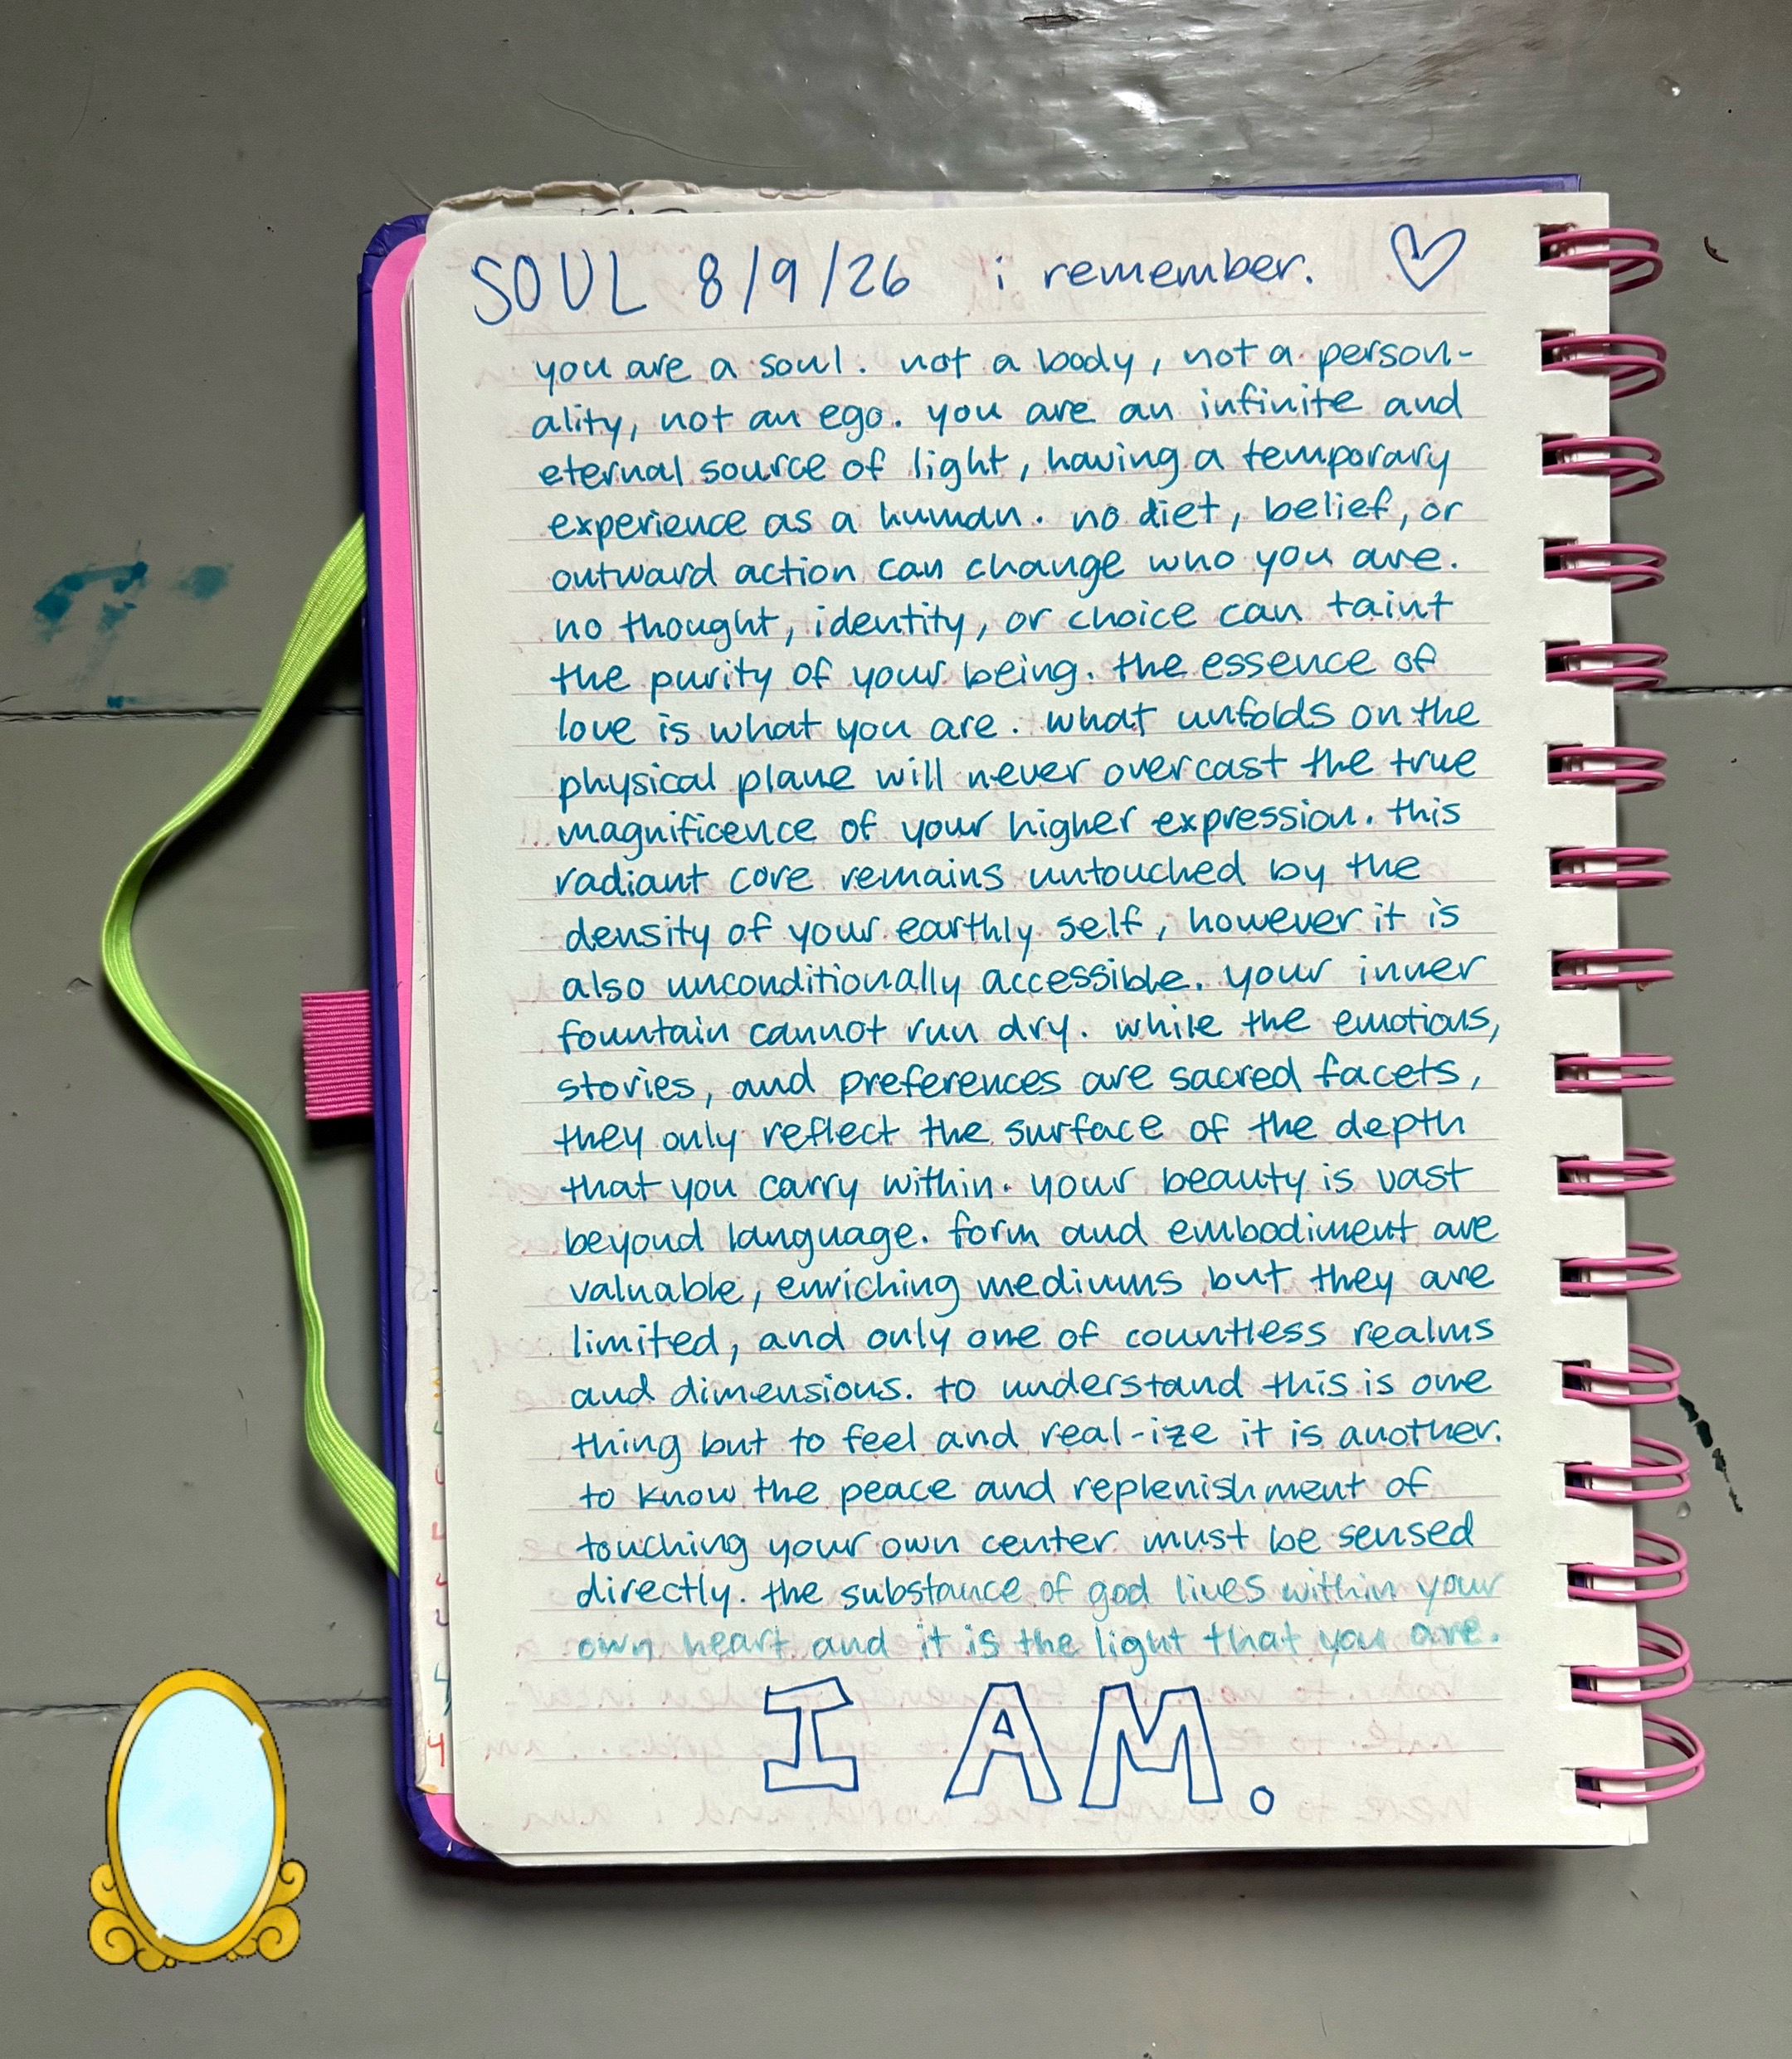 SOUL 8/9/26 i remember.
you are a soul. not a body, not a person-
ality, not an ego. you are an infinite and
eternal source of light, having a temporary
experience as a human. no diet, belief, or
outward action can change who you are.
no thought, identity, or choice can taint
the purity of your being. the essence of
love is what you are. what unfolds on the
physical plane will never overcast the true
magnificence of your higher expression. this
radiant core remains untouched by the
density of your earthly self, however it is
also unconditionally accessible. your inner
fountain cannot run dry. while the emotions,
stories, and preferences are sacred facets,
they only reflect the surface of the depth
that you carry within. your beauty is vast
beyond language. form and embodiment are
valuable, enriching mediums but they are
limited, and only one of countless realms
and dimensions. to understand this is one
thing but to feel and real-ize it is another.
to know the peace and replenishment of
touching your own center must be sensed
directly. the substance of god lives within your
own heart and it is the light that you are.
I AM.